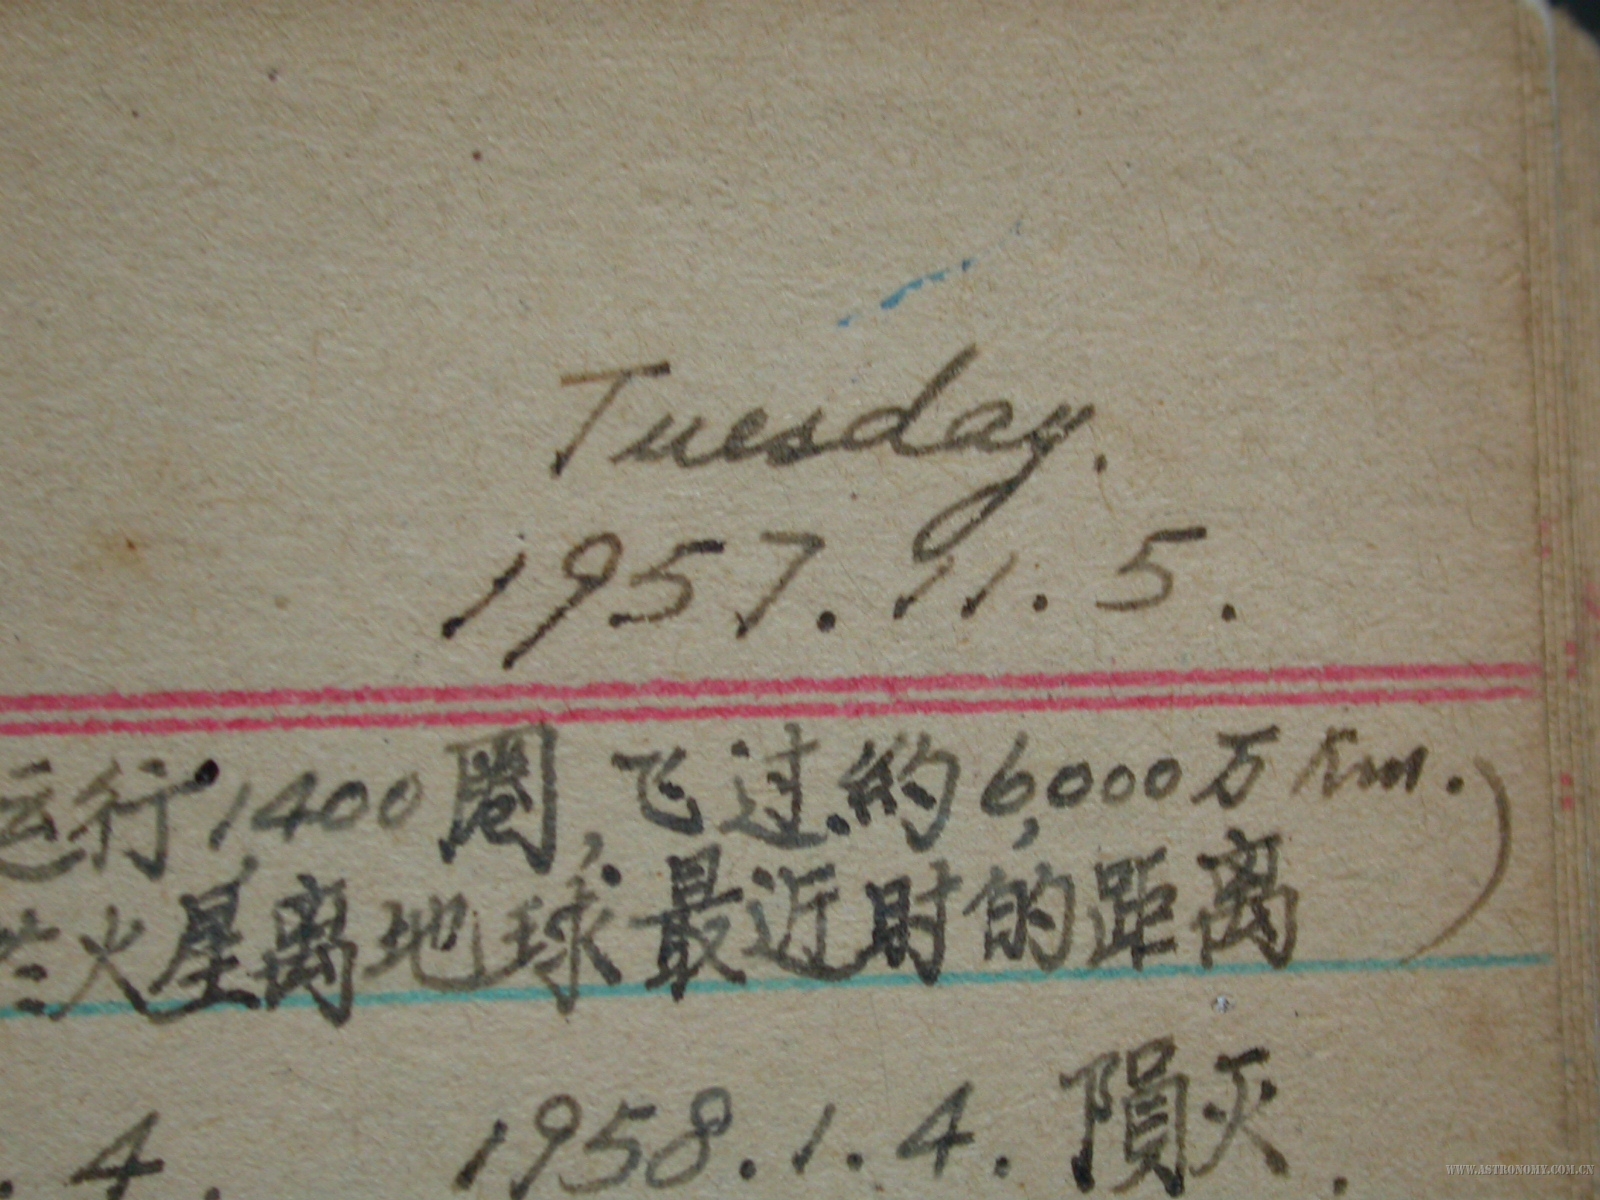 Tuesday.
1957.11.5.
运行1,400圈,飞过约6,000万Km.)
火星离地球最近时的距离
.4. 1958.1.4.隕灭.
WWW.ASTRONOMY.COM.CN